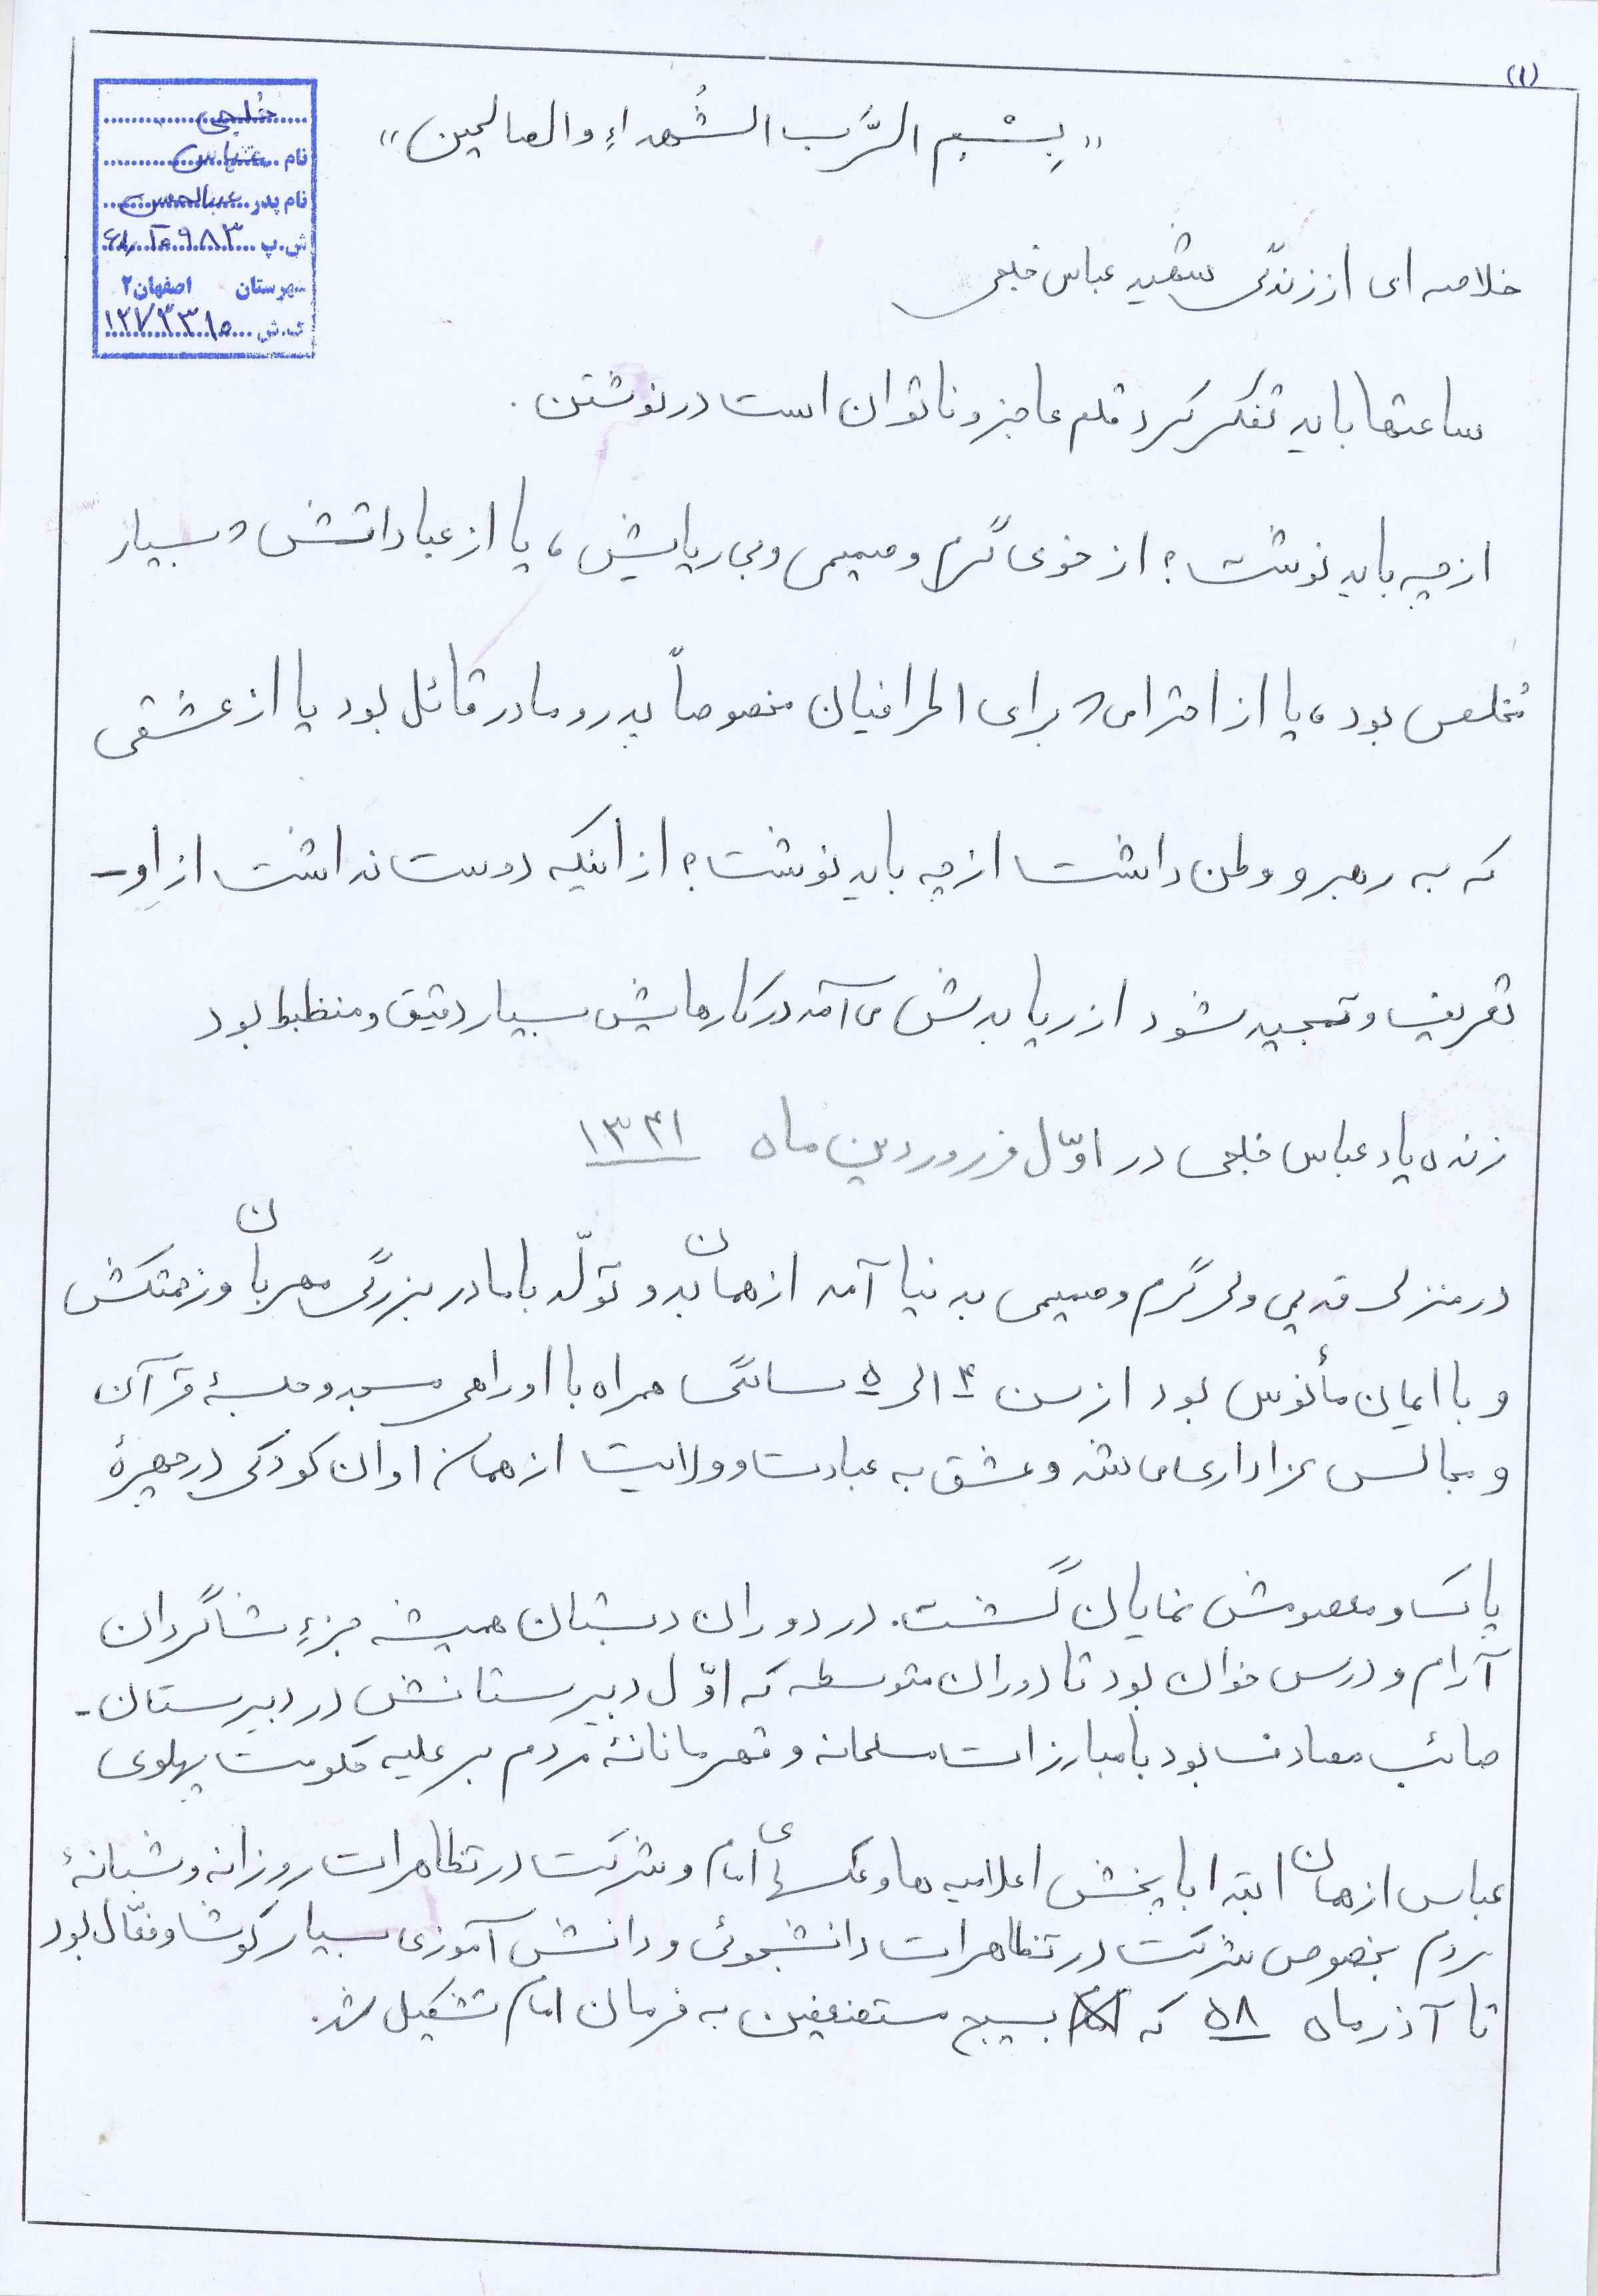 (۱)
خلجی
نام عباس
نام پدر عبدالحسین
ش.پ
شهرستان اصفهان ۲
ک.ش
«بِسْمِ الرَّب الشُهداءِ والصالحین»
خلاصه ای از زندگی شهید عباس خلجی
ساعتها باید تفکر کرد قلم عاجز و ناتوان است در نوشتن .
از چه باید نوشت؟ از خوی گرم و صمیمی و بی ریایش ، یا از عباداتش که بسیار
مُخلص بود ، یا از احترامی که برای اطرافیان مخصوصاً پدر و مادر قائل بود یا از عشقی
که به رهبر و وطن داشت از چه باید نوشت؟ از اینکه دوست نداشت از او -
تعریف و تمجید شود از ریا بدش می آمد در کارهایش بسیار دقیق و منظبط بود
زنده یاد عباس خلجی در اوّل فروردین ماه ۱۳۴۱
در منزلی قدیمی ولی گرم و صمیمی بدنیا آمد از همان بدو تولّد با مادر بزرگی مهربان و زحمتکش
و با ایمان مأنوس بود از سن ۴ الی ۵ سالگی همراه با او راهی مسجد و جلسهٔ قرآن
و مجالس عزاداری می شد و عشق به عبادت و ولایت از همان اوان کودکی در چهرهٔ
پاک و معصومش نمایان گشت. در دوران دبستان همیشه جزءِ شاگردان
آرام و درس خوان بود تا دوران متوسطه که اوّل دبیرستانش در دبیرستان -
صائب مصادف بود با مبارزات مسلحانه و قهرمانانهٔ مردم بر علیه حکومت پهلوی
عباس از همان ابتدا با پخش اعلامیه ها و عکسهای امام و شرکت در تظاهرات روزانه و شبانهٔ
مردم بخصوص شرکت در تظاهرات دانشجوئی و دانش آموزی بسیار کوشا و فعّال بود
تا آذر ماه ۵۸ که بسیج مستضعفین به فرمان امام تشکیل شد.